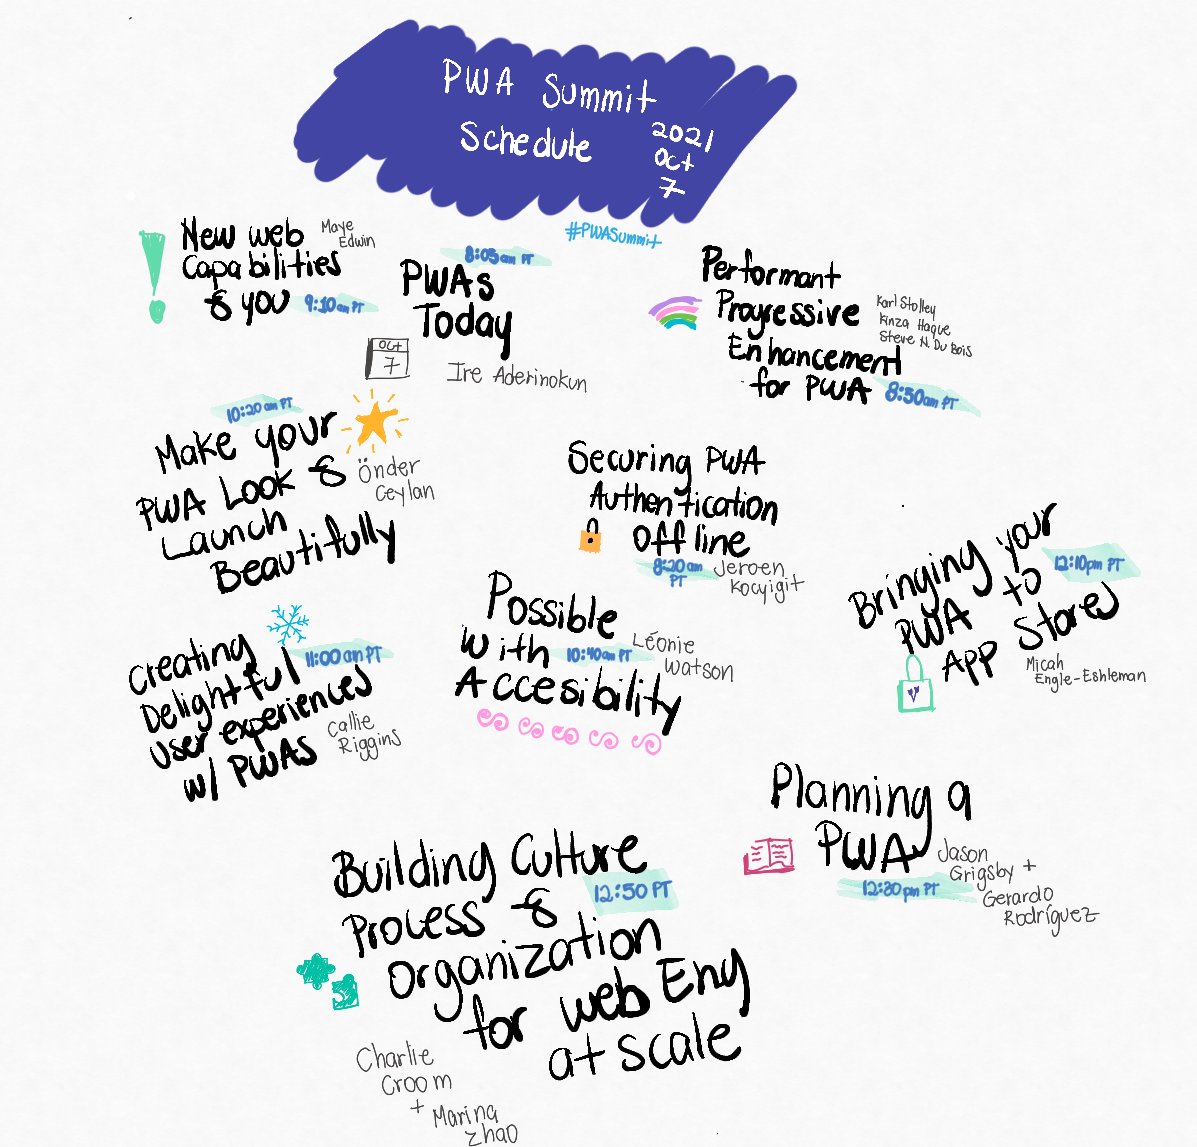 PWA Summit
Schedule
2021
Oct
7
#PWASummit
New web
Capabilities
& you
Maye
Edwin
9:10am PT
8:05am PT
PWAs
Today
Oct
7
Ire Aderinokun
Performant
Progressive
Enhancement
for PWA
Karl Stolley
Kinza Haque
Steve N. Du Bois
8:50am PT
10:20am PT
Make your
PWA Look &
Launch
Beautifully
Önder
Ceylan
Securing PWA
Authentication
Offline
8:20am
PT
Jeroen
Kocyigit
Possible
with
Accesibility
10:40am PT
Léonie
Watson
Bringing your
PWA to
App Stores
12:10pm PT
Micah
Engle-Eshleman
Creating
Delightful
User experiences
w/ PWAs
11:00am PT
Callie
Riggins
Planning a
PWA
12:30pm PT
Jason
Grigsby +
Gerardo
Rodríguez
Building Culture
Process &
Organization
for web Eng
at scale
12:50 PT
Charlie
Croom
+ Marina
Zhao